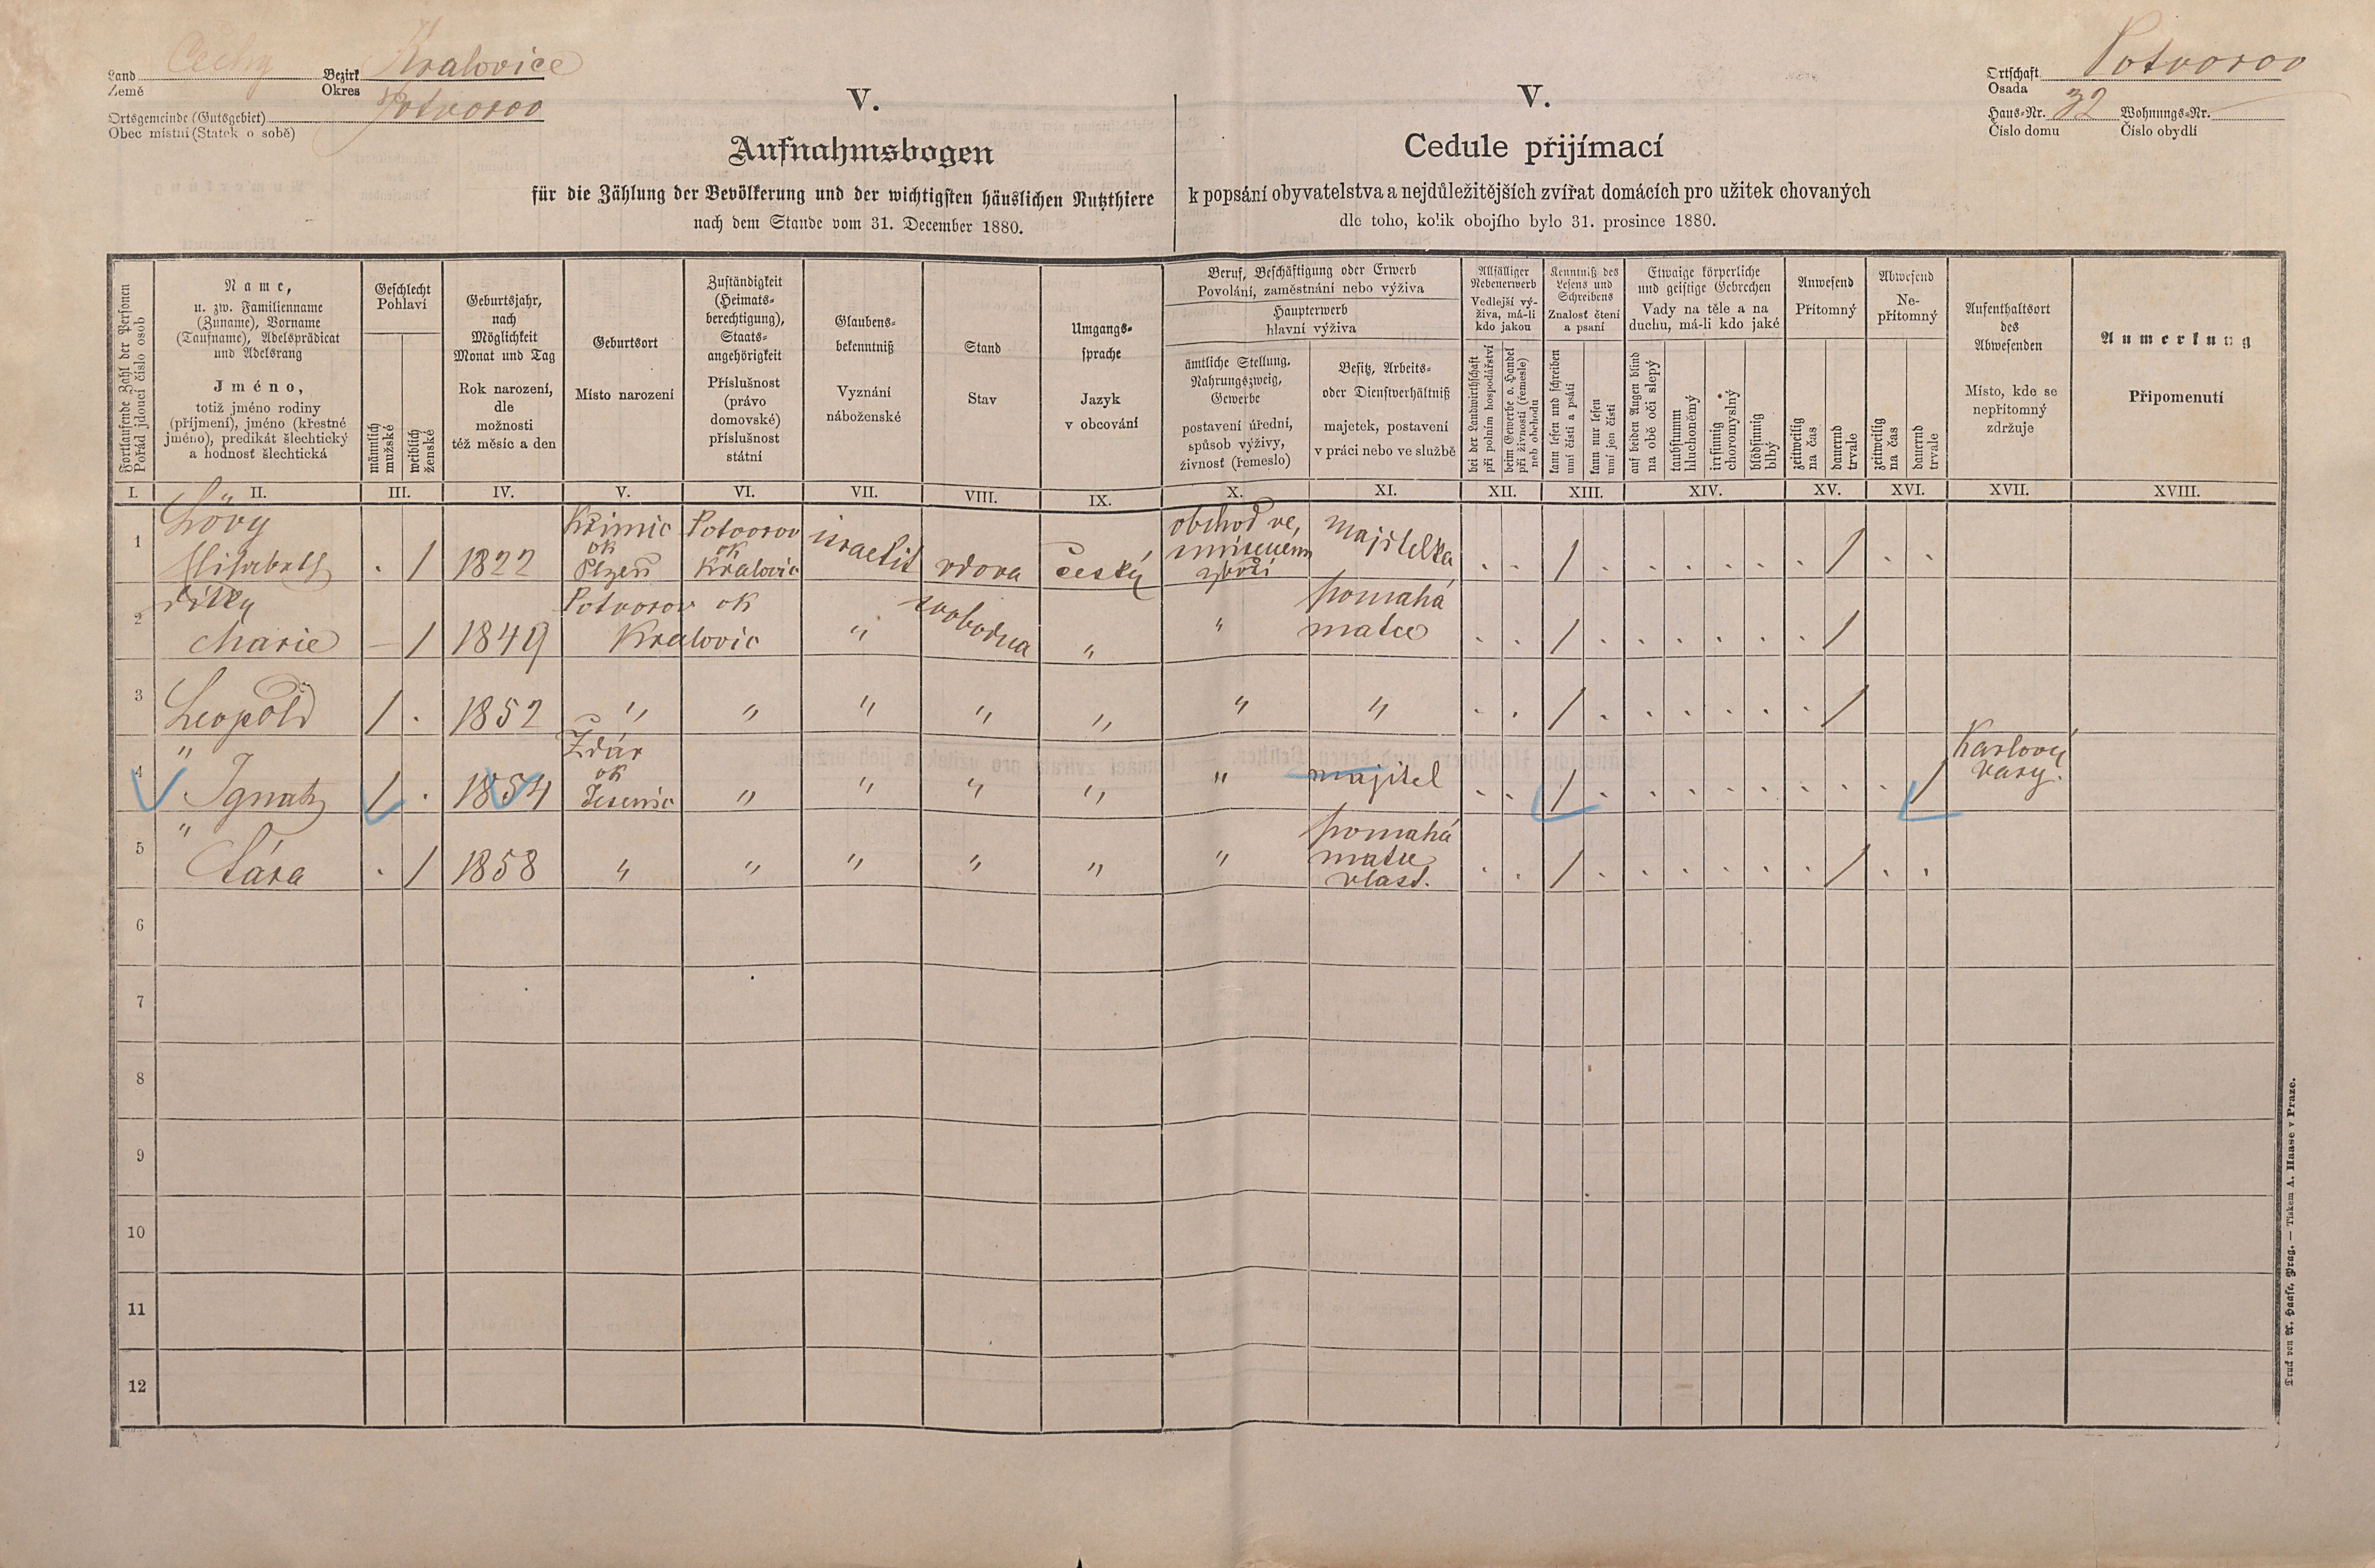 Land Čechy Bezirk Kralovice
Země Okres
Ortsgemeinde (Gutsgebiet) Potvorov
Obec místní (Statek o sobě)
Ortschaft Potvorov
Osada
Haus-Nr. 32 Wohnungs-Nr.
Číslo domu Číslo obydlí
V.
Aufnahmsbogen
für die Zählung der Bevölkerung und der wichtigsten häuslichen Nutzthiere
nach dem Stande vom 31. December 1880.
V.
Cedule přijímací
k popsání obyvatelstva a nejdůležitějších zvířat domácích pro užitek chovaných
dle toho, kolik obojího bylo 31. prosince 1880.
Fortlaufende Zahl der Personen
Pořád jdoucí číslo osob
Name,
u. zw. Familienname
(Zuname), Vorname
(Taufname), Adelsprädicat
und Adelsrang
Jméno,
totiž jméno rodiny
(příjmení), jméno (křestné
jméno), predikát šlechtický
a hodnosť šlechtická
Geschlecht
Pohlaví
männlich
mužské
weiblich
ženské
Geburtsjahr,
nach
Möglichkeit
Monat und Tag
Rok narození,
dle
možnosti
též měsíc a den
Geburtsort
Místo narození
Zuständigkeit
(Heimats-
berechtigung),
Staats-
angehörigkeit
Příslušnost
(právo
domovské)
příslušnost
státní
Glaubens-
bekenntniß
Vyznání
náboženské
Stand
Stav
Umgangs-
sprache
Jazyk
v obcování
Beruf, Beschäftigung oder Erwerb
Povolání, zaměstnání nebo výživa
Haupterwerb
hlavní výživa
ämtliche Stellung,
Nahrungszweig,
Gewerbe
postavení úřední,
spůsob výživy,
živnost (řemeslo)
Besitz, Arbeits-
oder Dienstverhältniß
majetek, postavení
v práci nebo ve službě
Allfälliger
Nebenerwerb
Vedlejší vý-
živa, má-li
kdo jakou
bei der Landwirthschaft
při polním hospodářství
beim Gewerbe o. Handel
při živnosti (řemesle)
neb obchodu
Kenntniß des
Lesens und
Schreibens
Znalost čtení
a psaní
kann lesen und schreiben
umí čísti a psáti
kann nur lesen
umí jen čísti
Etwaige körperliche
und geistige Gebrechen
Vady na těle a na
duchu, má-li kdo jaké
auf beiden Augen blind
na obě oči slepý
taubstumm
hluchoněmý
irrsinnig
choromyslný
blödsinnig
blbý
Anwesend
Přítomný
zeitweilig
na čas
dauernd
trvale
Abwesend
Ne-
přítomný
zeitweilig
na čas
dauernd
trvale
Aufenthaltsort
des
Abwesenden
Místo, kde se
nepřítomný
zdržuje
Anmerkung
Připomenutí
I. II. III. IV. V. VI. VII. VIII. IX. X. XI. XII. XIII. XIV. XV. XVI. XVII. XVIII.
1 Lövy
Elisabeth . / 1822 Křimic
ok
Plzeň Potvorov
ok
Kralovic israelit vdova česky obchod ve
smíseném
zboží majitelka . . / . . . . . . / . .
2 dítky
Marie — / 1849 Potvorov ok
Kralovic " svobodna " " pomahá
matce . . / . . . . . . /
3 Leopold / . 1852 " " " " " " " . . / . . . . . . /
4 " Ignatz / . 1854 Ždár
ok
Jesenic " " " " " majitel . . / . . . . . . . . / Karlový
vary.
5 " Sára . / 1858 " " " " " " pomahá
matce
vlast. . . / . . . . . . / . .
6
7
8
9
10
11
12
Druck von A. Haase, Prag. — Tiskem A. Haase v Praze.